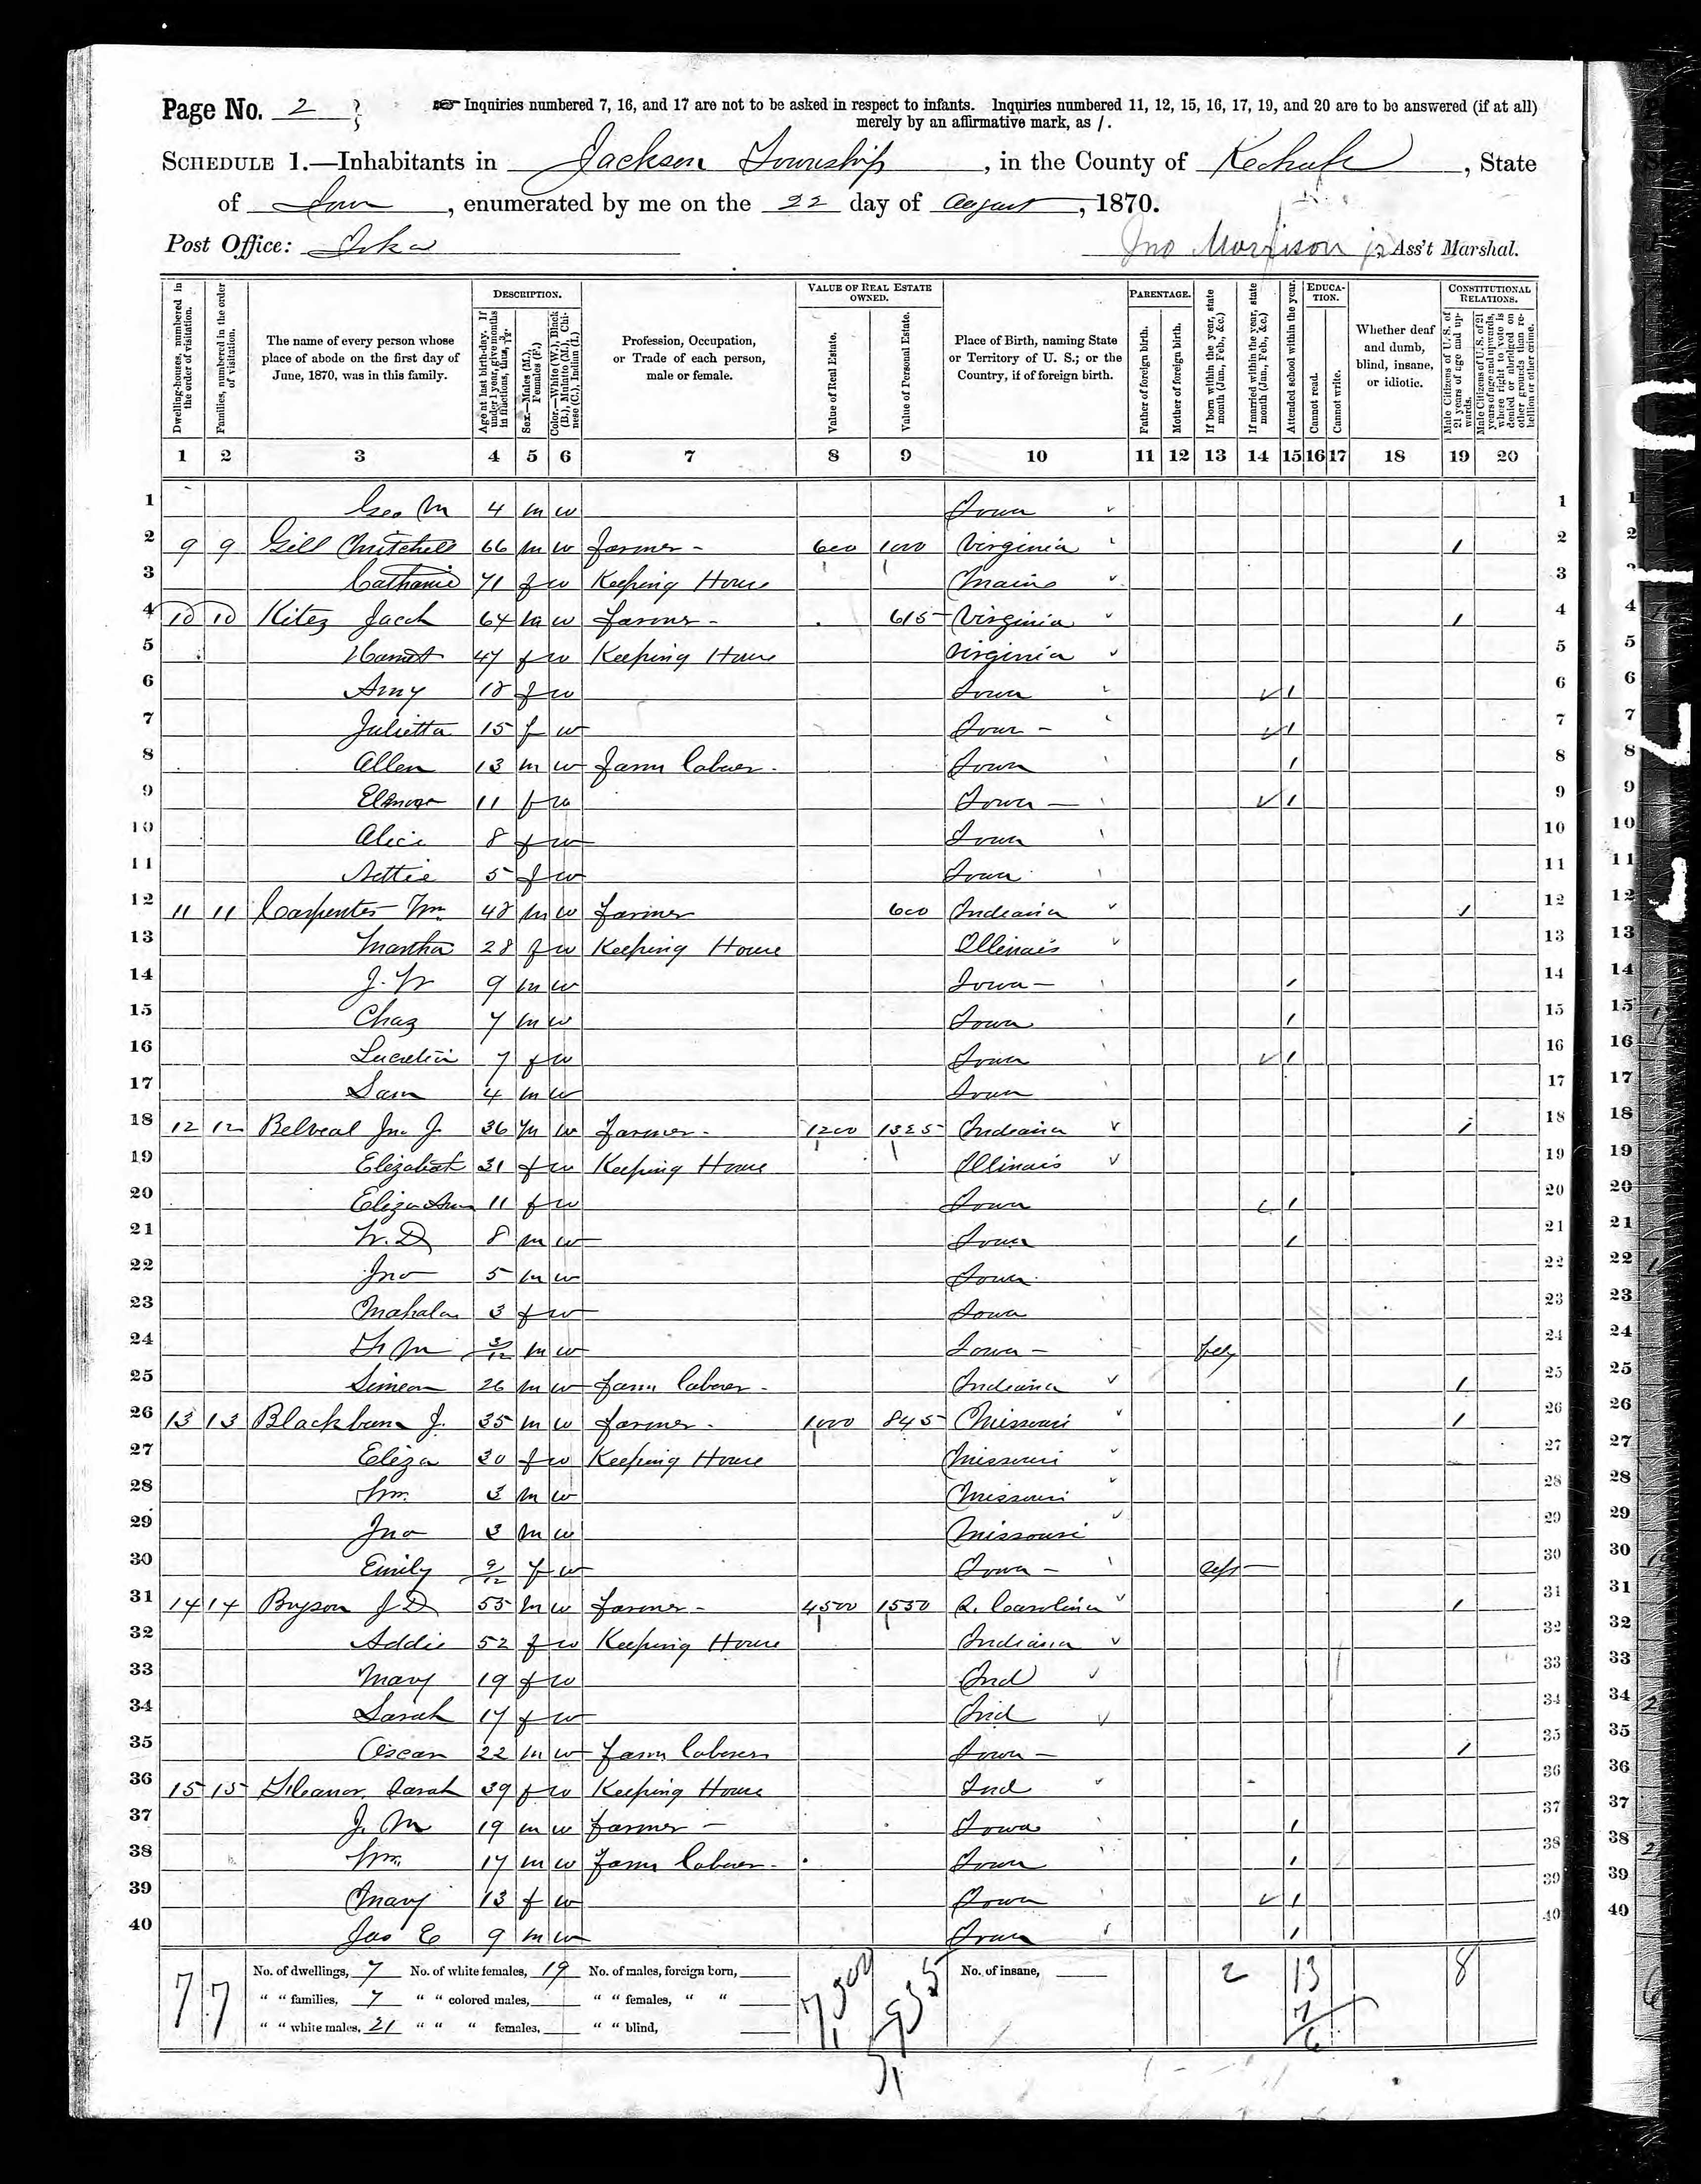 Page No. 2
Inquiries numbered 7, 16, and 17 are not to be asked in respect to infants. Inquiries numbered 11, 12, 15, 16, 17, 19, and 20 are to be answered (if at all)
merely by an affirmative mark, as /.
SCHEDULE 1.—Inhabitants in Jackson Township, in the County of Keokuk, State
of Iowa, enumerated by me on the 22 day of August, 1870.
Post Office: Ioka
Jno Morrison jr, Ass't Marshal.
Dwelling-houses, numbered in the order of visitation.
Families, numbered in the order of visitation.
The name of every person whose place of abode on the first day of June, 1870, was in this family.
DESCRIPTION.
Age at last birth-day. If under 1 year, give months in fractions, thus, 3/12.
Sex.—Males (M.), Females (F.)
Color.—White (W.), Black (B.), Mulatto (M.), Chinese (C.), Indian (I.)
Profession, Occupation, or Trade of each person, male or female.
VALUE OF REAL ESTATE OWNED.
Value of Real Estate.
Value of Personal Estate.
Place of Birth, naming State or Territory of U. S.; or the Country, if of foreign birth.
PARENTAGE.
Father of foreign birth.
Mother of foreign birth.
If born within the year, state month (Jan., Feb., &c.)
If married within the year, state month (Jan., Feb., &c.)
Attended school within the year.
EDUCATION.
Cannot read.
Cannot write.
Whether deaf and dumb, blind, insane, or idiotic.
CONSTITUTIONAL RELATIONS.
Male Citizens of U.S. of 21 years of age and upwards.
Male Citizens of U.S. of 21 years of age and upwards, where right to vote is denied or abridged on other grounds than rebellion or other crime.
1 2 3 4 5 6 7 8 9 10 11 12 13 14 15 16 17 18 19 20
1 Geo M 4 m w Iowa 1
2 9 9 Gill Mitchell 66 m w farmer - 600 1000 Virginia 1 2
3 71 f w Keeping House Maine 3
4 10 10 Kitez Jacob 64 m w farmer - 615 Virginia 1 4
5 47 f w Keeping House Virginia 5
6 Amy 18 f w Iowa 1 6
7 Julietta 15 f w Iowa - 1 7
8 Allen 13 m w farm laborer - Iowa 1 8
9 11 f w Iowa - 1 9
10 Alice 8 f w Iowa 10
11 Nettie 5 f w Iowa 11
12 11 11 Carpenter Wm 48 m w farmer 600 Indiana 1 12
13 Martha 28 f w Keeping House Illinois 13
14 J. W 9 m w Iowa - 1 14
15 Chas 7 m w Iowa 1 15
16 Lucretia 7 f w Iowa 1 16
17 Sam 4 m w Iowa 17
18 12 12 Belveal Jno J. 36 m w farmer - 1200 1325 Indiana 1 18
19 Elizabeth 31 f w Keeping House Illinois 19
20 Eliza Ann 11 f w Iowa 1 20
21 W. D 8 m w Iowa 1 21
22 Jno 5 m w Iowa 22
23 Mahala 3 f w Iowa 23
24 3/12 m w Iowa - 24
25 Simeon 26 m w farm laborer - Indiana 1 25
26 13 13 Blackburn J. 35 m w farmer - 1000 845 Missouri 1 26
27 Eliza 30 f w Keeping House Missouri 27
28 Wm. 3 m w Missouri 28
29 Jno 3 m w Missouri 29
30 Emily 9/12 f w Iowa - Sept 30
31 14 14 Bryson J D 55 m w farmer - 4500 1550 Carolina 1 31
32 Addie 52 f w Keeping House Indiana 32
33 Mary 19 f w Ind 33
34 Sarah 17 f w Ind 34
35 Oscar 22 m w farm laborer Iowa - 1 35
36 15 15 Sarah 39 f w Keeping House Ind 36
37 J. M 19 m w farmer - Iowa 1 37
38 Wm. 17 m w farm laborer - Iowa 1 38
39 Mary 13 f w Iowa 1 39
40 Jas E 9 m w Iowa 1 40
7 7 No. of dwellings, 7 No. of white females, 19 No. of males, foreign born, 7300 5935 No. of insane, 2 13 8
" " families, 7 " " colored males, " " females, " " 7
" " white males, 21 " " " females, " " blind, 6